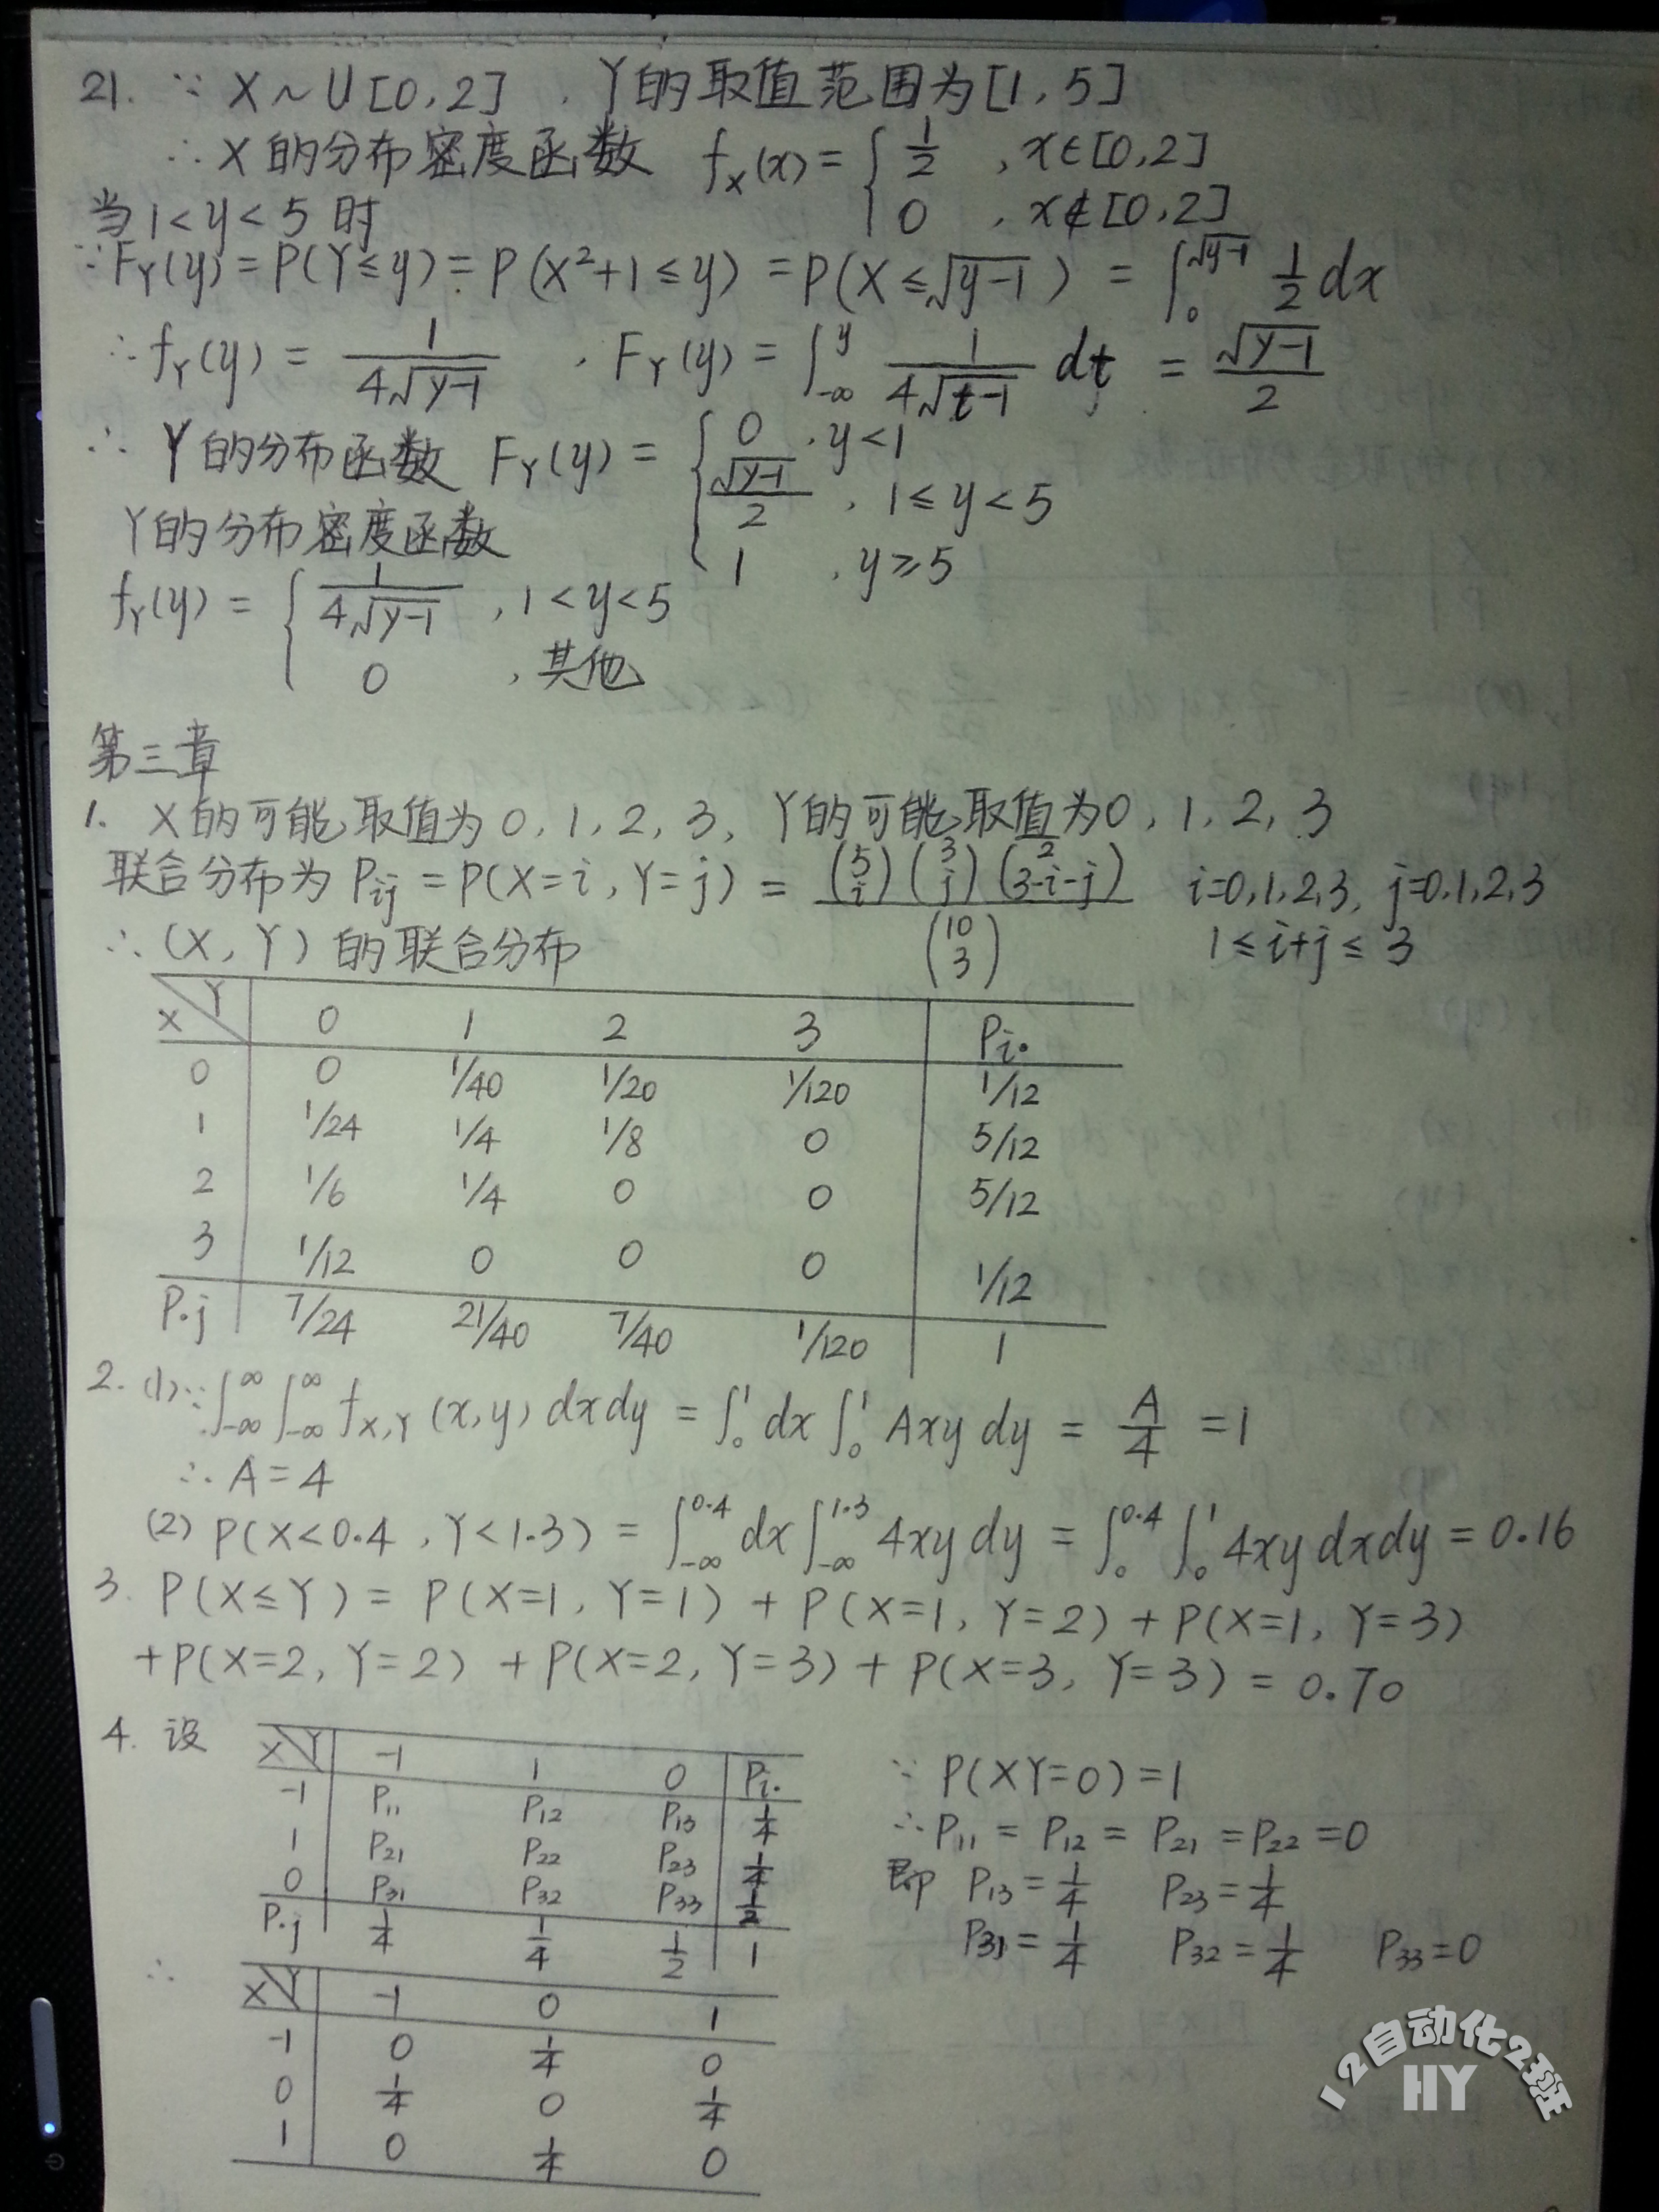 21. ∵ X~U[0,2] , Y的取值范围为[1,5]
∴ X的分布密度函数 fX(x) = { 1/2 , x∈[0,2]
0 , x∉[0,2]
当1<y<5时
∵FY(y) = P(Y≤y) = P(X²+1≤y) = P(X≤√(y-1)) = ∫₀^√(y-1) 1/2 dx
∴ fY(y) = 1/(4√(y-1)) , FY(y) = ∫_{-∞}^y 1/(4√(t-1)) dt = √(y-1)/2
∴ Y的分布函数 FY(y) = { 0 , y<1
√(y-1)/2 , 1≤y<5
1 , y≥5
Y的分布密度函数
fY(y) = { 1/(4√(y-1)) , 1<y<5
0 , 其他
第三章
1. X的可能取值为0,1,2,3, Y的可能取值为0,1,2,3
联合分布为 Pij = P(X=i,Y=j) = (5 i)(3 j)(2 3-i-j)/(10 3) i=0,1,2,3, j=0,1,2,3
1≤i+j≤3
∴ (X,Y)的联合分布
X Y 0 1 2 3 Pi·
0 0 1/40 1/20 1/120 1/12
1 1/24 1/4 1/8 0 5/12
2 1/6 1/4 0 0 5/12
3 1/12 0 0 0 1/12
P·j 7/24 21/40 7/40 1/120 1
2. (1)∵∫_{-∞}^∞∫_{-∞}^∞ fX,Y(x,y)dxdy = ∫₀¹dx∫₀¹Axydy = A/4 = 1
∴ A=4
(2) P(X<0.4,Y<1.3) = ∫_{-∞}^{0.4}dx∫_{-∞}^{1.3}4xydy = ∫₀^{0.4}∫₀¹4xydxdy = 0.16
3. P(X≤Y) = P(X=1,Y=1) + P(X=1,Y=2) + P(X=1,Y=3)
+P(X=2,Y=2) + P(X=2,Y=3) + P(X=3,Y=3) = 0.70
4. 设
X Y -1 1 0 Pi·
-1 P11 P12 P13 1/4
1 P21 P22 P23 1/4
0 P31 P32 P33 1/2
P·j 1/4 1/4 1/2 1
∵ P(XY=0)=1
∴P11 = P12 = P21 = P22 = 0
即 P13=1/4 P23=1/4
P31=1/4 P32=1/4 P33=0
∴
X Y -1 0 1
-1 0 1/4 0
0 1/4 0 1/4
1 0 1/4 0
12自动化2班
HY